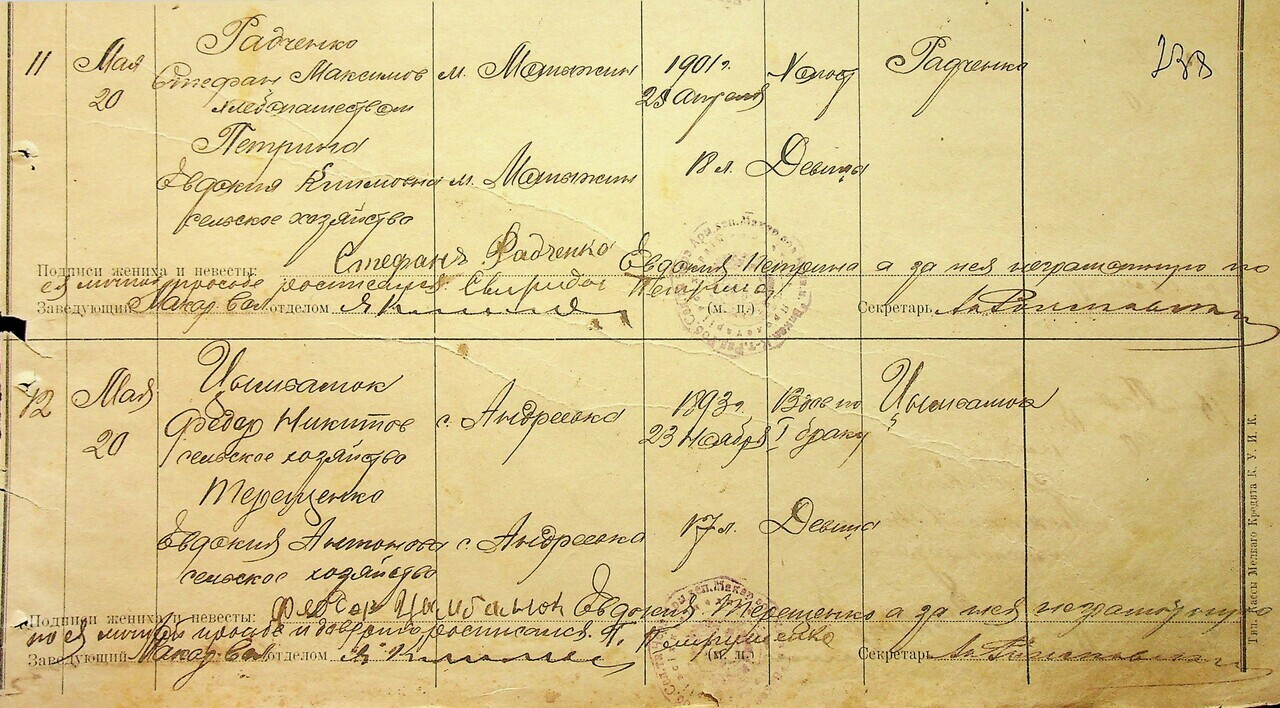 11 Мая 20 Радченко
Стефан Максимов м. Мотыжин 1901 г. 25 Апреля Холост Радченко 238
хлебопашеством
Петрина
Евдокия Климовна м. Мотыжин 18 л. Девица
сельское хозяйство
Подписи жениха и невесты: Стефанъ Радченко Евдокия Петрина а за нея неграмотную по
ея личной просьбе росписался Свиридон Петрина
Заведующий Макар Вол отделом (м. п.) Секретарь
12 Мая 20 Цымбалюк
Федор Никитов с. Андреевка 1893 г. 23 Ноября Вдов по I браку Цымбалюк
сельское хозяйство
Терещенко
Евдокия Антонова с. Андреевка 17 л. Девица
сельское хозяйство
Подписи жениха и невесты: Федор Цымбалюк Евдокия Терещенко а за нея неграмотную
по ея личной просьбе и доверию росписался
Заведующий Макар Вол отделом (м. п.) Секретарь
Тип. Кассы Мелкаго Кредита К. У. И. К.